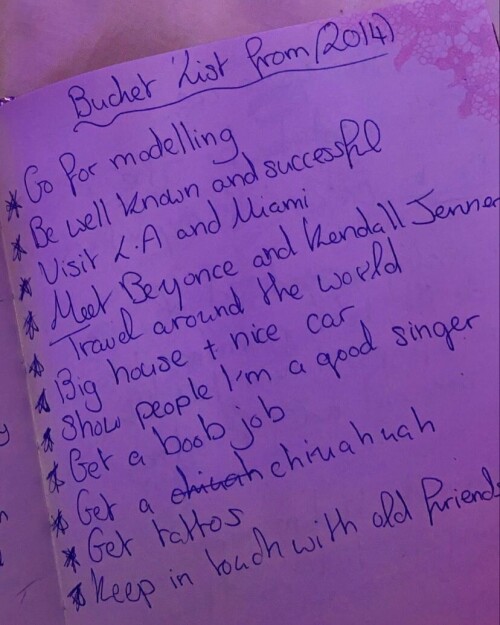 Bucket List from (2014)
* Go for modelling
* Be well known and successful
* Visit L.A and Miami
* Meet Beyonce and Kendall Jenner
* Travel around the world
* Big house + nice car
* Show people I'm a good singer
* Get a boob job
* Get a chiuah chiuahuah
* Get tattos
* Keep in touch with old friends